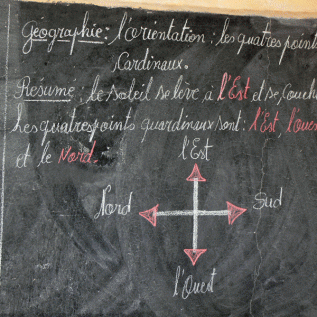 Géographie : l'orientation : les quatres points
Cardinaux.
Résume : le soleil se lève à l'Est et se couche
Les quatres points quardinaux sont : l'Est l'oues
et le Nord.
l'Est
Nord
Sud
l'Ouest